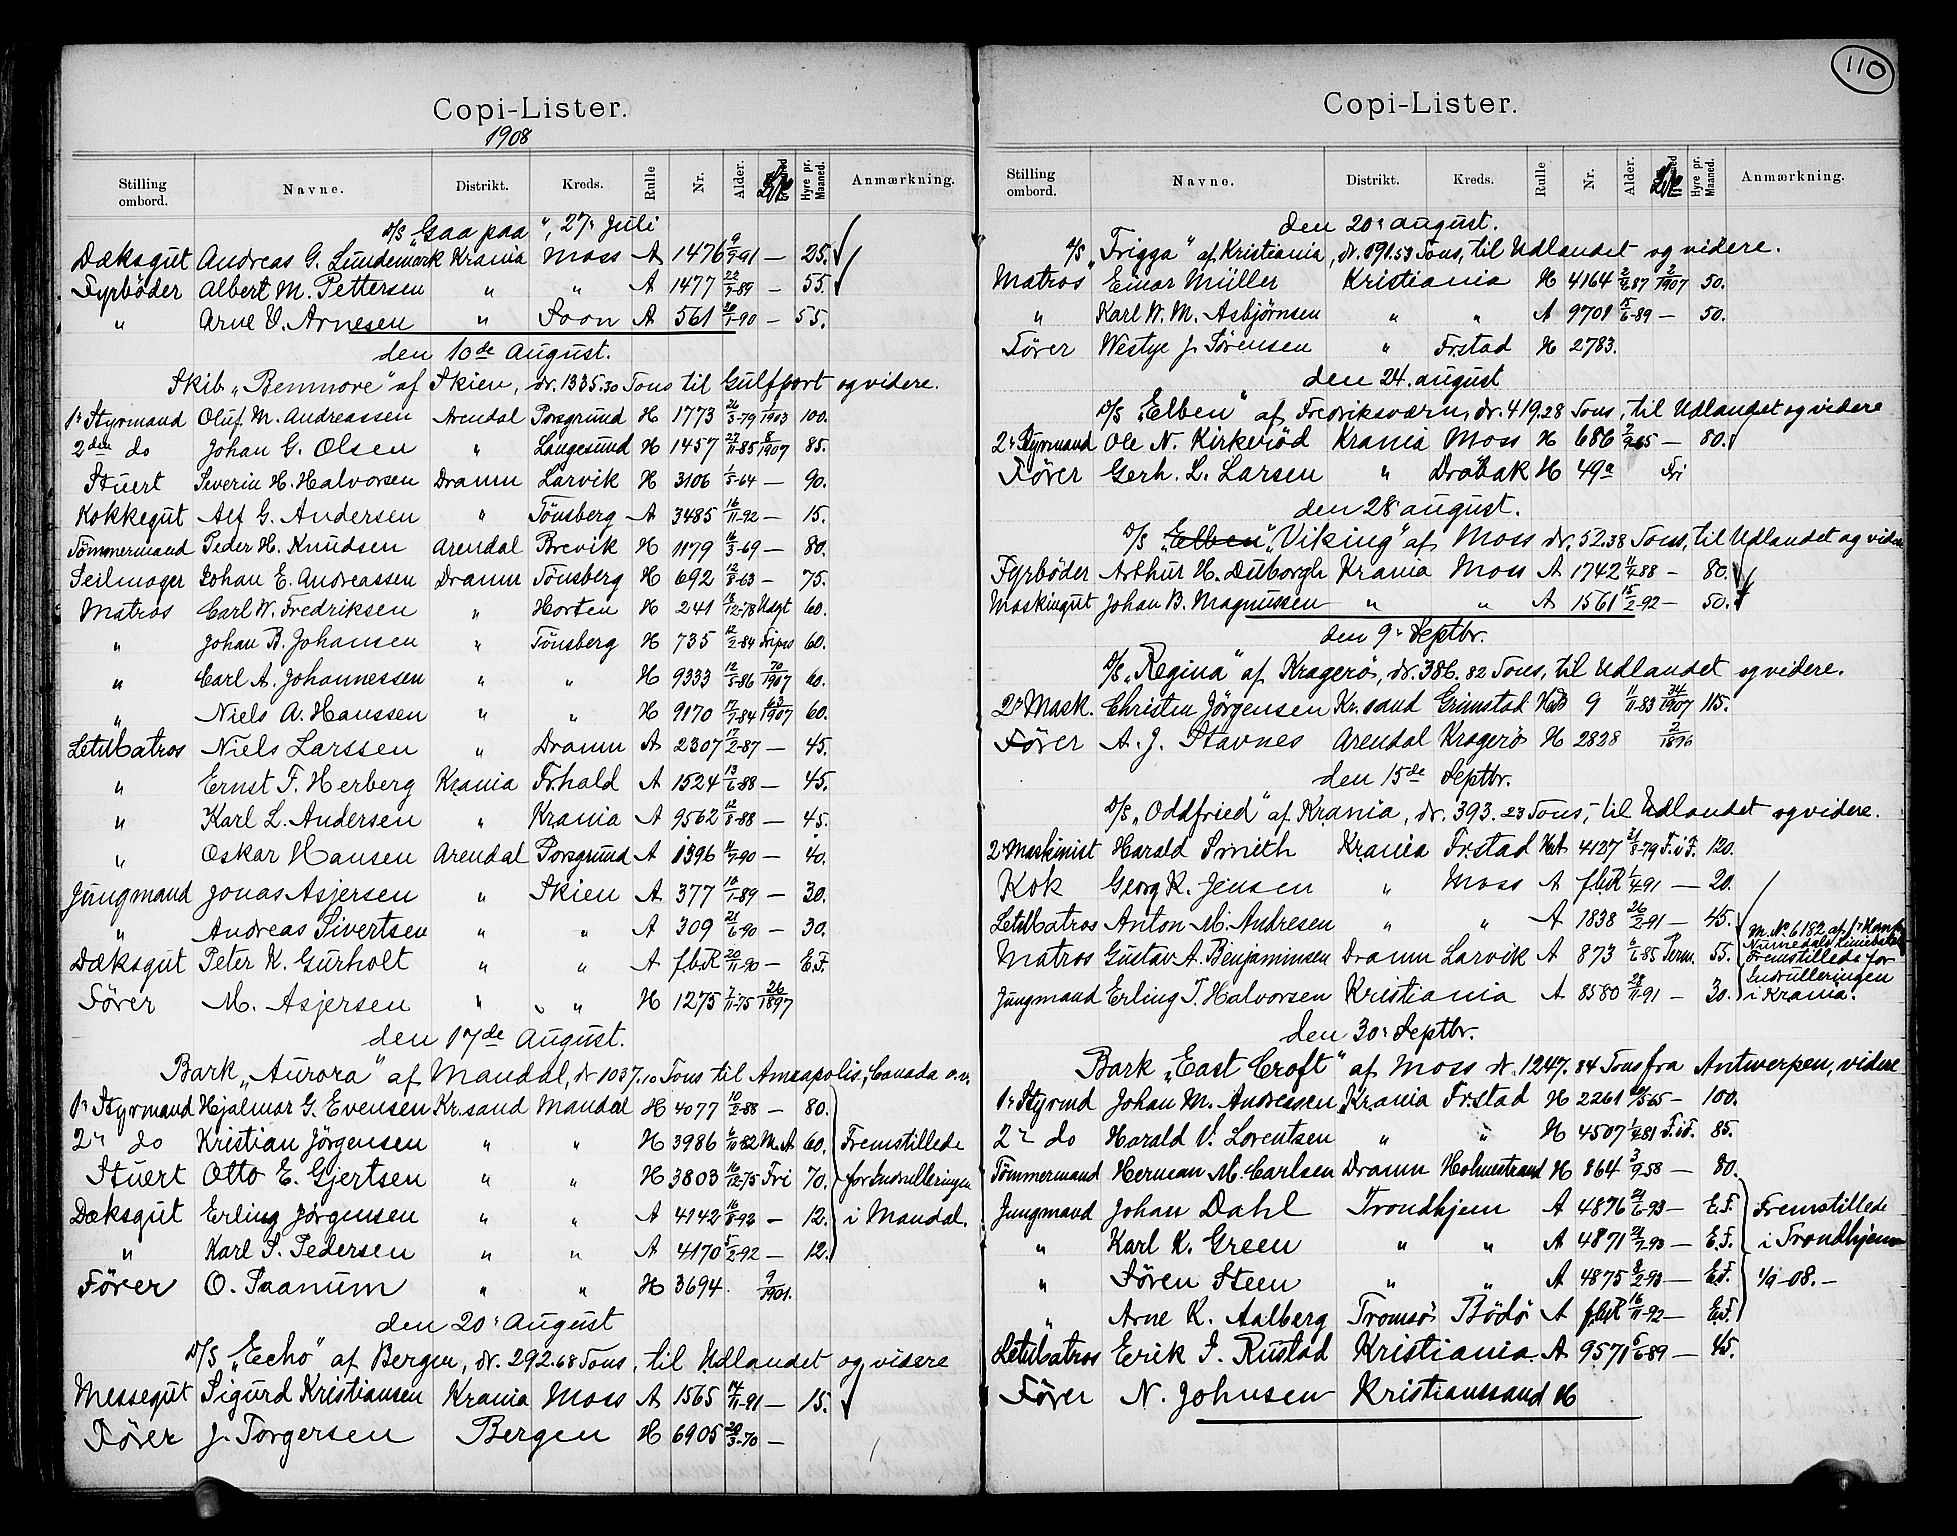 Copi-Lister.
1908
Stilling ombord. Navne. Distrikt. Kreds. Rulle Nr. Alder. Hyre pr. Maaned. Anmærkning.
D/S „Gaa paa", 27' Juli
Dæksgut Andreas G. Lundemark Krania Moss A 1476 9/7-91 — 25.
Fyrböder Albert M. Pettersen " " A 1477 22/7-89 — 55.
" Arne V. Arnesen " Soon A 561 30/1-90 — 55.
den 10de August.
Skib „Benmore" af Skien, dr. 1335.30 Tons til Gulfport og videre.
1' Styrmand Oluf M. Andreassen Arendal Porsgrund H 1773 26/3-79 1903 100.
2den do Johan G. Olsen " Langesund H 1457 27/11-85 8/1907 85.
Stuert Severin H. Halvorsen Dramn Larvik H 3106 1/5-64 — 90.
Kokkegut Alf G. Andersen " Tönsberg A 3485 16/11-92 — 15.
Tömmermand Peder H. Knudsen Arendal Brevik H 1179 16/3-69 — 80.
Seilmager Johan E. Andreassen Dramn Tönsberg H 692 12/8-63 — 75.
Matros Carl W. Fredriksen " Horten H 241 13/12-78 Udgt 60.
" Johan B. Johansen " Tönsberg H 735 12/2-84 60.
" Carl A. Johannessen " " H 9333 12/5-86 70/1907 60.
" Niels A. Hanssen " " H 9170 17/7-84 1907 60.
Letmatros Niels Larssen " Dramn A 2307 17/2-87 — 45.
" Ernst F. Herberg Krania Fr.hald A 1524 13/6-88 — 45.
" Karl L. Andersen " Krania A 9562 12/8-88 — 45.
" Oskar Hansen Arendal Porsgrund A 1396 11/7-90 — 40.
Jungmand Jonas Asjersen " Skien A 377 10/1-89 — 30.
" Andreas Sivertsen " " A 309 21/6-90 — 30.
Dæksgut Peter K. Gurholt " " A f.b.R 20/11-90 — E.F.
Förer M. Asjersen " " H 1275 7/11-75 26/1897
den 17de August.
Bark „Aurora" af Mandal, dr 1037.10 Tons til Canada o.v.
1' Styrmand Hjalmar G. Evensen Kr.sand Mandal H 4077 10/2-88 — 80.
2' do Kristian Jörgensen " " H 3986 6/10-82 M.A 60. Fremstillede
Stuert Otto E. Gjertsen " " H 3803 16/12-75 Fri 70. for Indrulleringen
Dæksgut Erling Jörgensen " " A 4142 16/8-92 — 12. i Mandal.
" Karl S. Pedersen " " A 4170 5/2-92 — 12.
Förer O. Saanum " " H 3694. 9/1901.
den 20' August
D/S „Echo" af Bergen, dr. 292.68 Tons, til Udlandet og videre
Messegut Sigurd Kristiansen Krania Moss A 1565 14/11-91 — 15.
Förer J. Torgersen Bergen H 6905 20/3-70 —
110
Copi-Lister.
Stilling ombord. Navne. Distrikt. Kreds. Rulle Nr. Alder. Hyre pr. Maaned. Anmærkning.
den 20' August.
D/S „Frigga" af Kristiania, dr. 891.53 Tons, til Udlandet og videre.
Matros Einar Müller Kristiania H 4164 2/2-87 2/1907 50.
" Karl W. M. Asbjørnsen " " A 9701 15/6-89 — 50.
Förer Westye J. Sörensen " Fr.stad H 2783.
den 24. August
D/S „Elben" af Fredriksværn, dr. 419.28 Tons, til Udlandet og videre
2' Styrmand Ole N. Kirkeröd Krania Moss H 686 2/9-65 — 80.
Förer Gerh. L. Larsen " Dröbak H 49a Fri
den 28' August.
D/S „Elben" „Viking" af Moss dr. 52.38 Tons, til Udlandet og videre
Fyrböder Arthur H. Duborgh Krania Moss A 1742 1/4-88 — 80.
Maskingut Johan B. Magnussen " " A 1561 15/2-92 — 50.
den 9' Septbr.
D/S „Regina" af Kragerö, dr. 386.82 Tons, til Udlandet og videre.
2' Mask. Christen Jörgensen Kr.sand Grimstad 9 11/11-83 34/1907 115.
Förer A. J. Stavnes Arendal Kragerö H 2828 2/1896
den 15de Septbr.
D/S „Oddfried" af Krania, dr. 393.23 Tons, til Udlandet og videre.
2' Maskinist Harald Smith Krania Fr.stad 4127 21/8-79 F.i.F. 120.
Kok Georg K. Jensen " Moss A f.b.R 1/4-91 — 20.
Letmatros Anton M. Andresen " " A 1838 26/2-91 — 45. M. No 6152 af
Matros Gustav A. Benjaminsen Dramn Larvik A 873 6/6-85 Perm. 55. Fremstillede for
Jungmand Erling T. Halvorsen Kristiania A 8580 28/11-91 — 30. Indrulleringen i Krania.
den 30' Septbr.
Bark „East Croft" af Moss dr. 1247.84 Tons fra Antwerpen, videre
1' Styrmd Johan M. Andreassen Krania Fr.stad H 2261 5-65 — 100.
2' do Harald V. Lorentsen " " H 4507 1/9-81 F.i.F. 85.
Tömmermand Herman M. Carlsen Dramn Holmestrand H 864 3/9-58 — 80.
Jungmand Johan Dahl Trondhjem A 4876 21/6-93 — E.F. Fremstillede
" Karl K. Green " " A 4871 21/7-93 — E.F. i Trondhjem
" Sören Steen " " A 4875 8/2-93 — E.F. 1/9-08.-
" Arne K. Aalberg Tromsö Bödö A f.b.R 16/11-92 — E.F.
Letmatros Erik J. Rustad Kristiania A 9571 6/6-89 — 45.
Förer N. Johnsen Kristianssand H